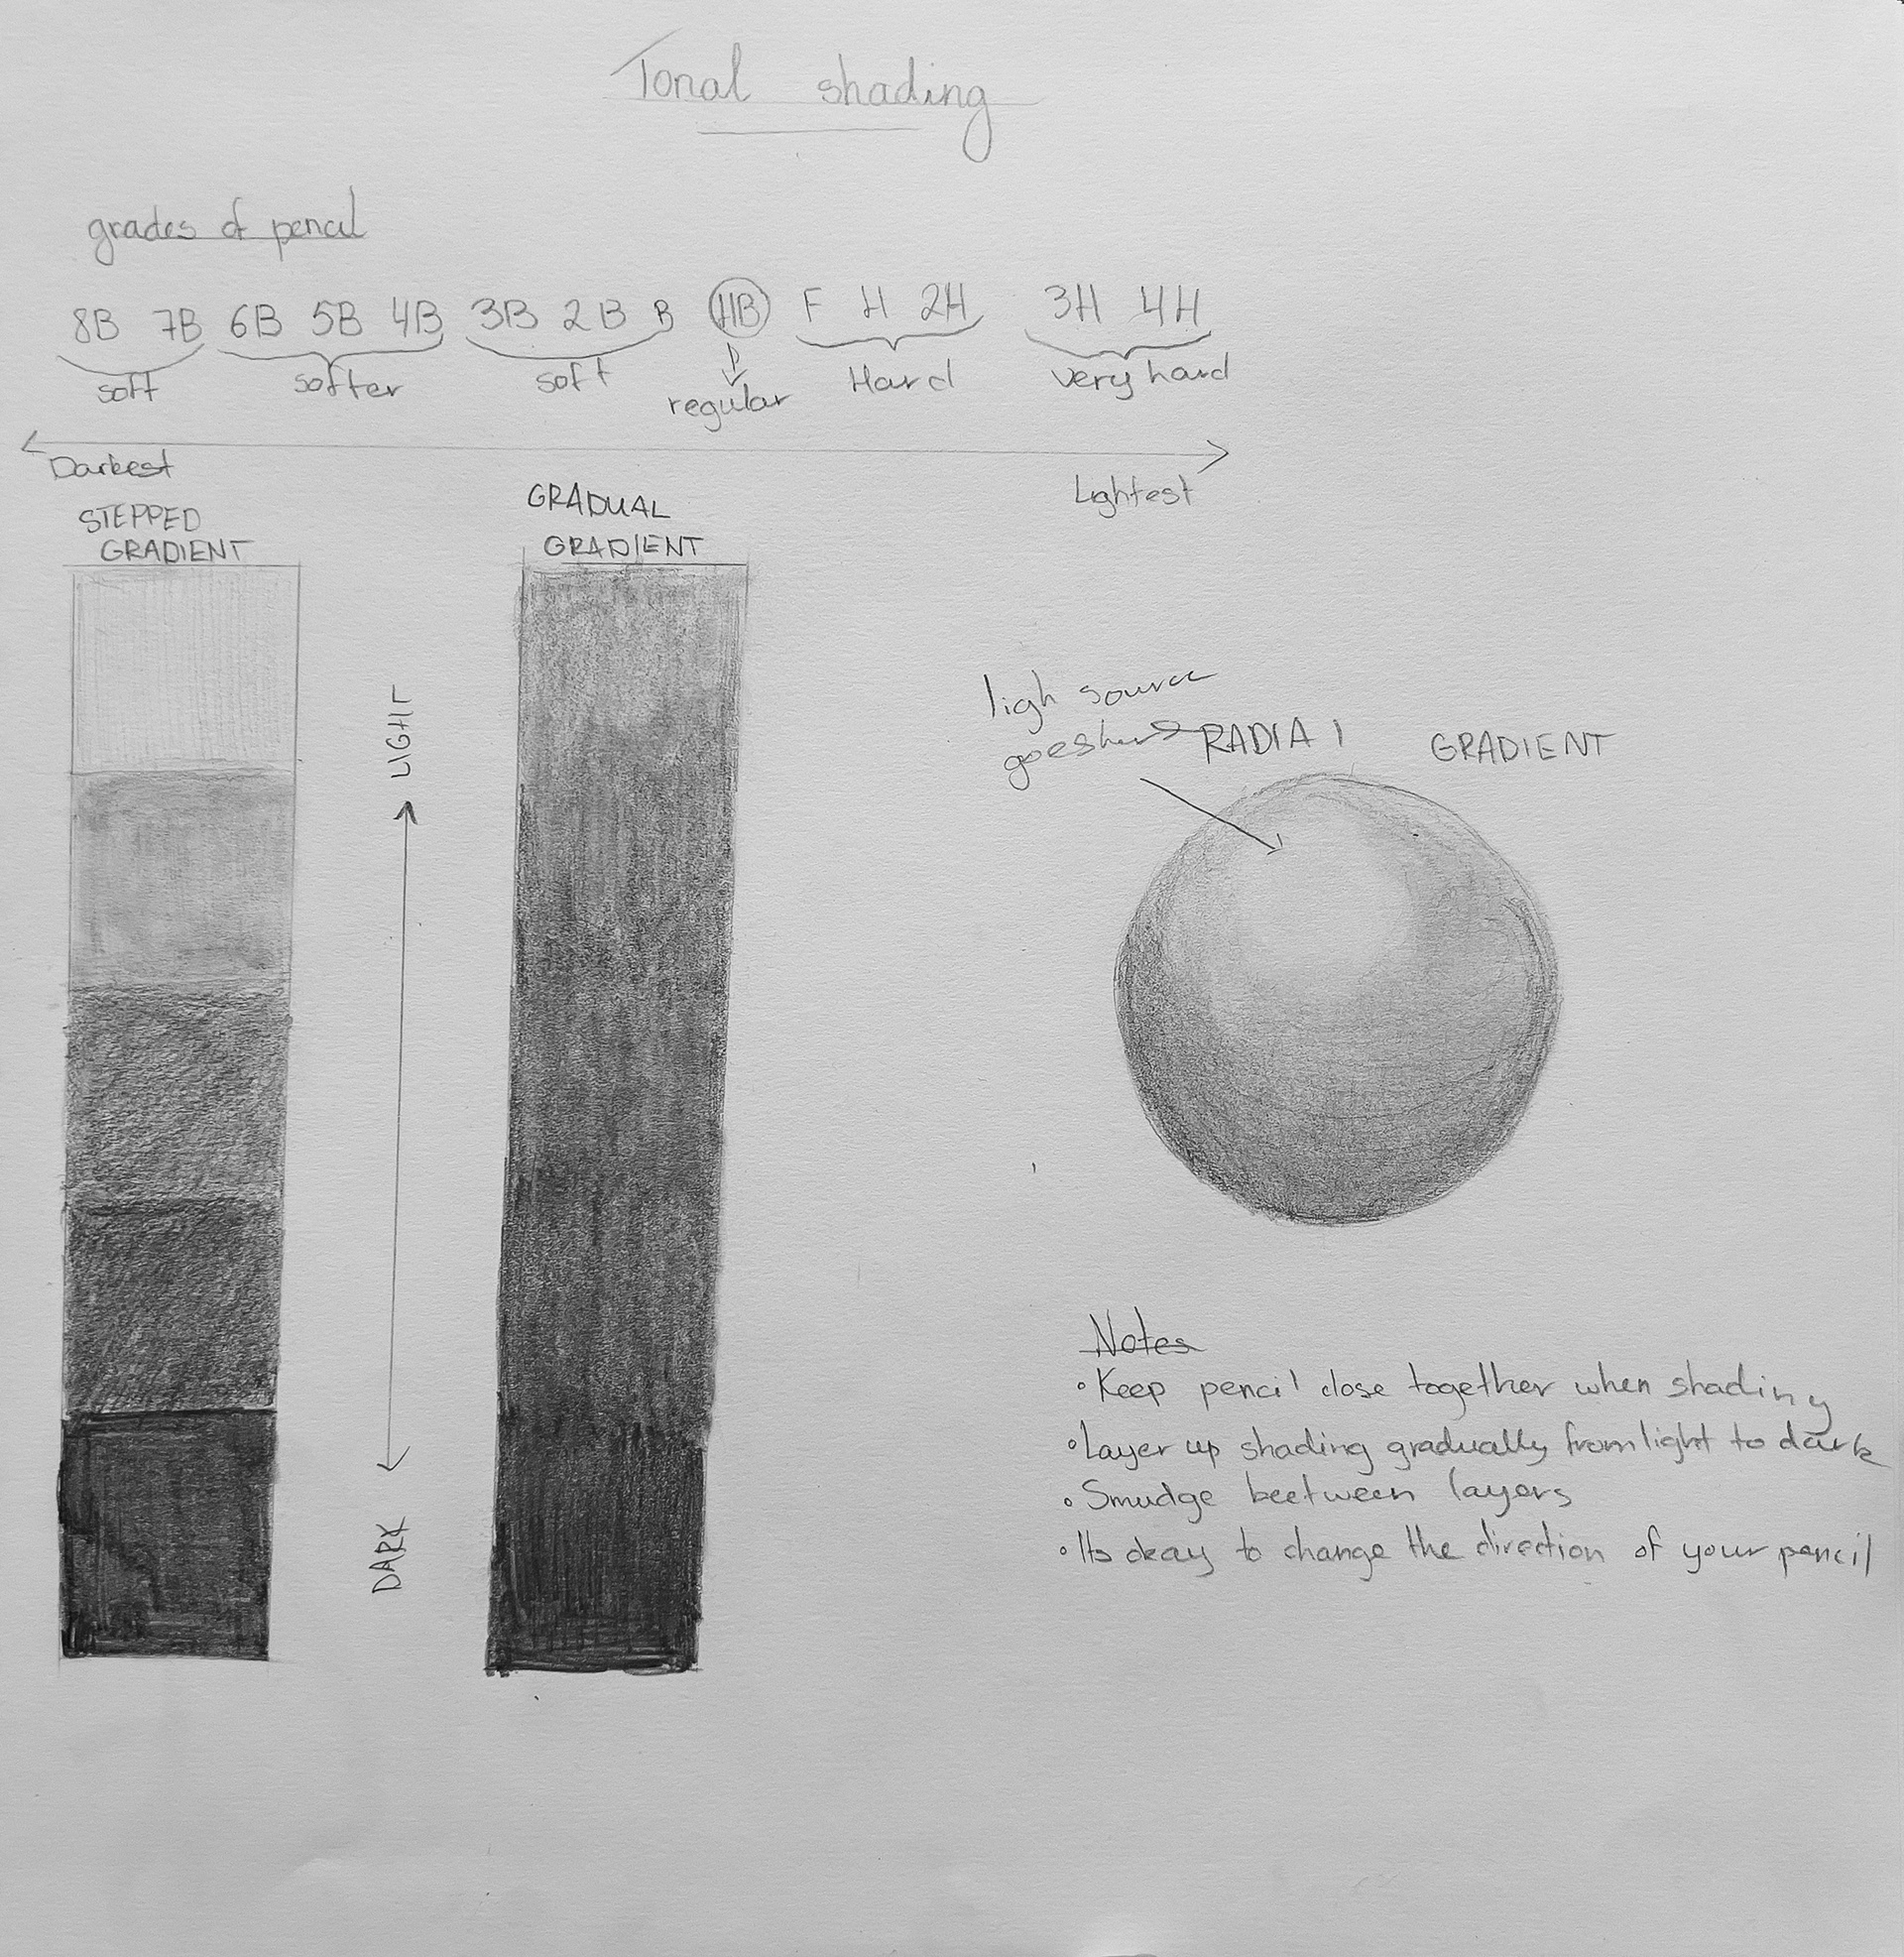 Tonal shading
grades of pencil
8B 7B 6B 5B 4B 3B 2B B HB F H 2H 3H 4H
soft softer soft regular Hard very hard
Darkest
Lightest
STEPPED
GRADIENT
GRADUAL
GRADIENT
LIGHT
DARK
ligh source
goes here
RADIAl GRADIENT
Notes
• Keep pencil close together when shading
• Layer up shading gradually from light to dark
• Smudge beetween layers
• Its okay to change the direction of your pencil